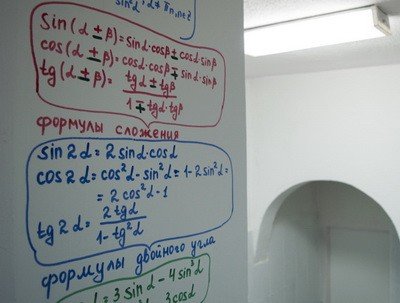 sin²α, α ≠ πn, n∈Z
sin(α ± β) = sinα·cosβ ± cosα·sinβ
cos(α ± β) = cosα·cosβ ∓ sinα·sinβ
tg(α ± β) = (tgα ± tgβ)/(1 ∓ tgα·tgβ)
формулы сложения
sin2α = 2sinα·cosα
cos2α = cos²α - sin²α = 1 - 2sin²α =
= 2cos²α - 1
tg2α = 2tgα/(1 - tg²α)
формулы двойного угла
= 3sinα - 4sin³α
3cosα